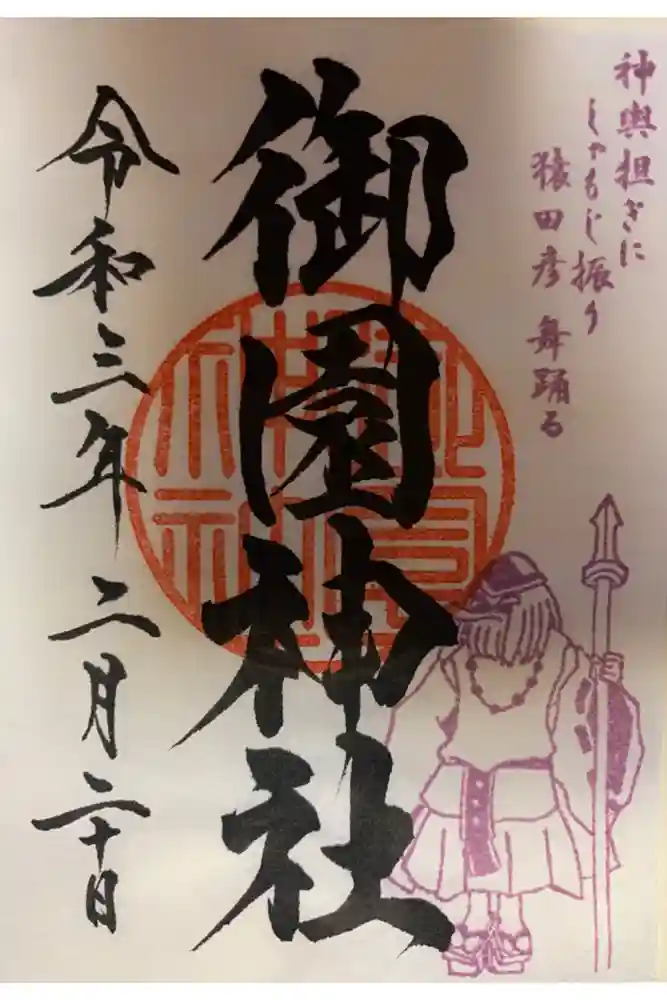 神輿担ぎに
しゃもじ振り
猿田彦舞踊る
御園神社
令和三年二月二十日